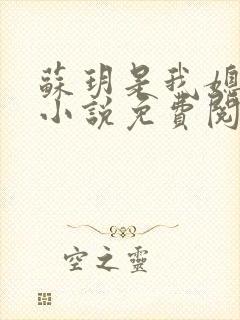 蘇玥是我媳
小說免費閱
空之靈